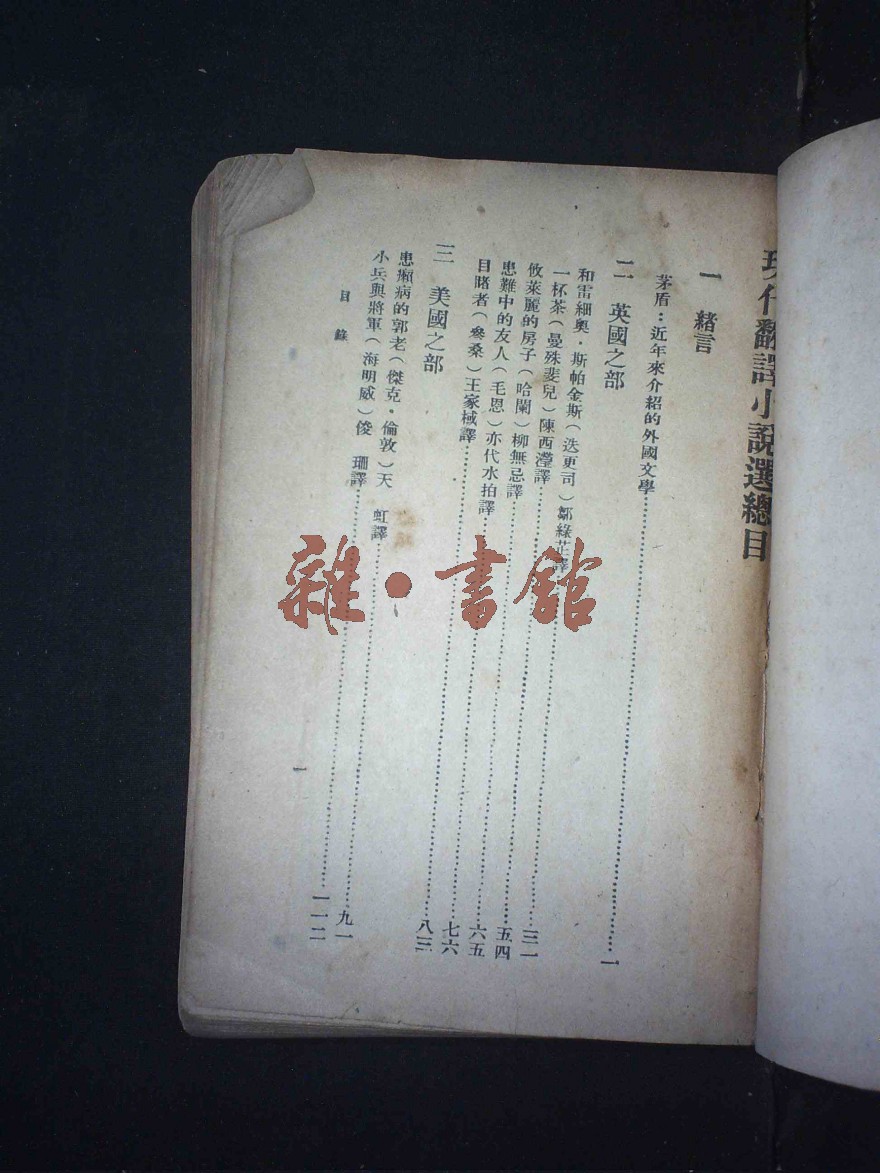 現代翻譯小說選總目
一 緒言
茅盾:近年來介紹的外國文學……………一
二 英國之部
和雷細奧·斯帕金斯(迭更司)鄒綠芷譯……………三一
一杯茶(曼殊斐兒)陳西瀅譯……………五四
攸萊麗的房子(哈闌)柳無忌譯……………六五
患難中的友人(毛恩)亦代水拍譯……………七六
目睹者(參桑)王家棫譯……………八三
三 美國之部
患癩病的郭老(傑克·倫敦)天 虹譯……………九一
小兵與將軍(海明威)俊 珊譯……………一一二
目錄
一
雜·書館